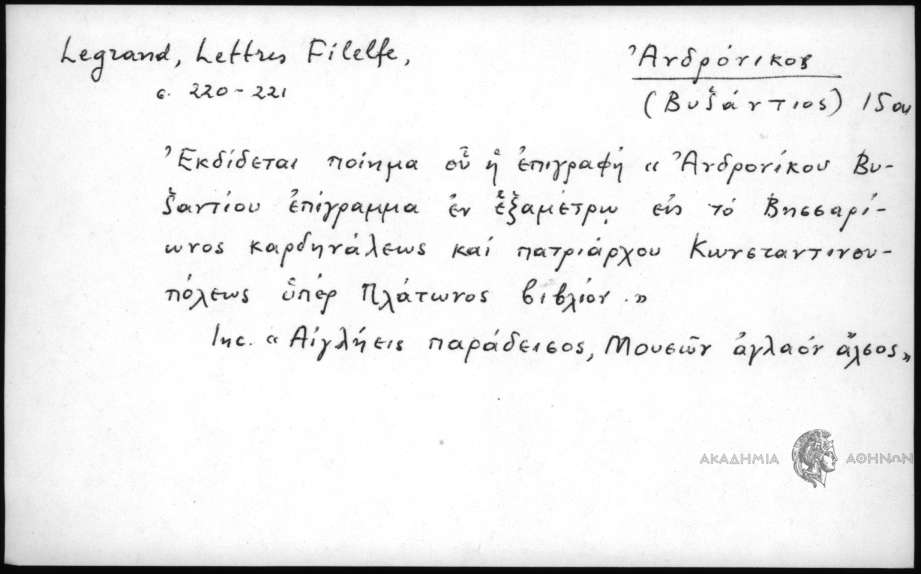 Legrand, Lettres Filelfe,
σ. 220-221
Ἀνδρόνικος
(Βυζάντιος) 15ου
Ἐκδίδεται ποίημα οὗ ἡ ἐπιγραφή «Ἀνδρονίκου Βυ-
ζαντίου ἐπίγραμμα ἐν ἑξαμέτρῳ εἰς τό Βησσαρί-
ωνος καρδηνάλεως καί πατριάρχου Κωνσταντινου-
πόλεως ὑπέρ Πλάτωνος βιβλίον.»
Inc. «Αἰγλήεις παράδεισος, Μουσῶν ἀγλαόν ἄλσος»
ΑΚΑΔΗΜΙΑ ΑΘΗΝΩΝ